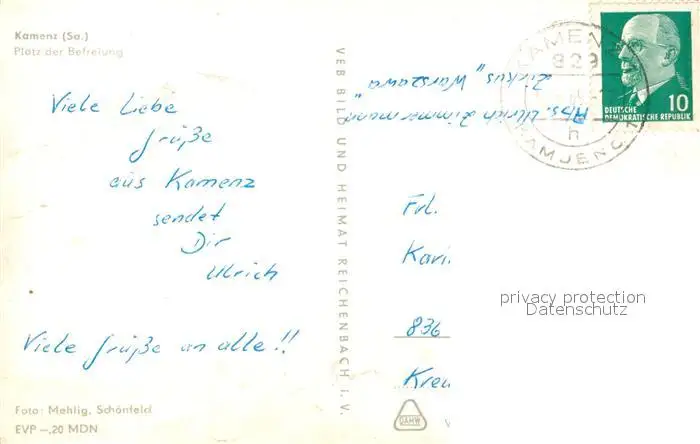 Kamenz (Sa.)
Platz der Befreiung
Viele Liebe
Grüße
aus Kamenz
sendet
Dir
Ulrich
Viele Grüße an alle!!
Foto: Mehlig, Schönfeld
EVP –,20 MDN
VEB BILD UND HEIMAT REICHENBACH I. V.
Abs. Ulrich Zimmermann
Zirkus „Warszawa"
KAMENZ
829
h
KAMJENC
10
DEUTSCHE
DEMOKRATISCHE REPUBLIK
Frl.
Kari
836
Kreu
privacy protection
Datenschutz
DAMW
V